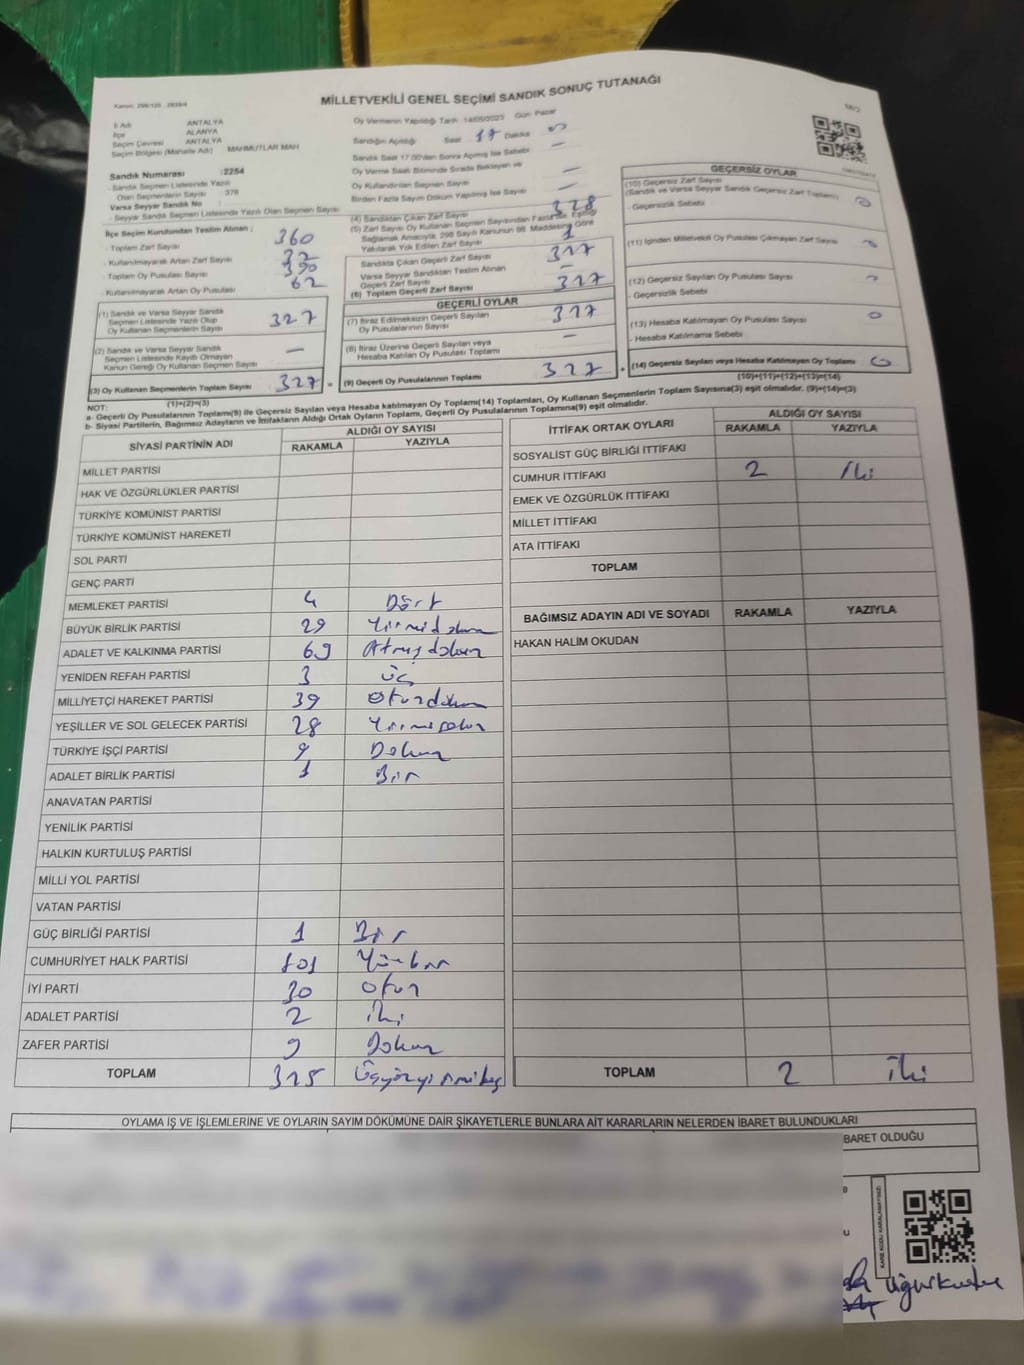 Kanun: 298/105 , 2839/4
MİLLETVEKİLİ GENEL SEÇİMİ SANDIK SONUÇ TUTANAĞI
İl Adı ANTALYA
İlçe ALANYA
Seçim Çevresi ANTALYA
Seçim Bölgesi (Mahalle Adı) MAHMUTLAR MAH
Sandık Numarası :2254
- Sandık Seçmen Listesinde Yazılı
Olan Seçmenlerin Sayısı : 378
Varsa Seyyar Sandık No :
- Seyyar Sandık Seçmen Listesinde Yazılı Olan Seçmen Sayısı
Oy Vermenin Yapıldığı Tarih: 14/05/2023 Gün: Pazar
Sandığın Açıldığı Saat 17 Dakika
Sandık Saat 17.00'den Sonra Açılmış İse Sebebi —
Oy Verme Saati Bitiminde Sırada Bekleyen ve
Oy Kullandırılan Seçmen Sayısı —
Birden Fazla Sayım Döküm Yapılmış İse Sayısı —
İlçe Seçim Kurulundan Teslim Alınan ;
- Toplam Zarf Sayısı 360
- Kullanılmayarak Artan Zarf Sayısı 32
- Toplam Oy Pusulası Sayısı 390
- Kullanılmayarak Artan Oy Pusulası 62
(1) Sandık ve Varsa Seyyar Sandık
Seçmen Listesinde Yazılı Olup
Oy Kullanan Seçmenlerin Sayısı 327
(2) Sandık ve Varsa Seyyar Sandık
Seçmen Listesinde Kayıtlı Olmayan
Kanun Gereği Oy Kullanan Seçmen Sayısı —
(3) Oy Kullanan Seçmenlerin Toplam Sayısı 327 =
(1)+(2)=(3)
(4) Sandıktan Çıkan Zarf Sayısı 328
(5) Zarf Sayısı Oy Kullanan Seçmen Sayısından Fazla ise, Eşitliği
Sağlamak Amacıyla, 298 Sayılı Kanunun 98. Maddesine Göre
Yakılarak Yok Edilen Zarf Sayısı 1
Sandıkta Çıkan Geçerli Zarf Sayısı 327
Varsa Seyyar Sandıktan Teslim Alınan
Geçerli Zarf Sayısı —
(6) Toplam Geçerli Zarf Sayısı 327
GEÇERLİ OYLAR
(7) İtiraz Edilmeksizin Geçerli Sayılan
Oy Pusulalarının Sayısı 327
(8) İtiraz Üzerine Geçerli Sayılan veya
Hesaba Katılan Oy Pusulası Toplamı —
(9) Geçerli Oy Pusulalarının Toplamı 327 +
GEÇERSİZ OYLAR
(10) Geçersiz Zarf Sayısı
(Sandık ve Varsa Seyyar Sandık Geçersiz Zarf Toplamı) 0
- Geçersizlik Sebebi
(11) İçinden Milletvekili Oy Pusulası Çıkmayan Zarf Sayısı
(12) Geçersiz Sayılan Oy Pusulası Sayısı
- Geçersizlik Sebebi
(13) Hesaba Katılmayan Oy Pusulası Sayısı 0
- Hesaba Katılmama Sebebi
(14) Geçersiz Sayılan veya Hesaba Katılmayan Oy Toplamı 0
(10)+(11)+(12)+(13)=(14)
NOT:
a- Geçerli Oy Pusulalarının Toplamı(9) ile Geçersiz Sayılan veya Hesaba katılmayan Oy Toplamı(14) Toplamları, Oy Kullanan Seçmenlerin Toplam Sayısına(3) eşit olmalıdır. (9)+(14)=(3)
b- Siyasi Partilerin, Bağımsız Adayların ve İttifakların Aldığı Ortak Oyların Toplamı, Geçerli Oy Pusulalarının Toplamına(9) eşit olmalıdır.
SİYASİ PARTİNİN ADI ALDIĞI OY SAYISI
RAKAMLA YAZIYLA
MİLLET PARTİSİ
HAK VE ÖZGÜRLÜKLER PARTİSİ
TÜRKİYE KOMÜNİST PARTİSİ
TÜRKİYE KOMÜNİST HAREKETİ
SOL PARTİ
GENÇ PARTİ
MEMLEKET PARTİSİ 4 Dört
BÜYÜK BİRLİK PARTİSİ 29 Yirmidokuz
ADALET VE KALKINMA PARTİSİ 69 Atmışdokuz
YENİDEN REFAH PARTİSİ 3 üç
MİLLİYETÇİ HAREKET PARTİSİ 39 Otuzdokuz
YEŞİLLER VE SOL GELECEK PARTİSİ 28 Yirmisekiz
TÜRKİYE İŞÇİ PARTİSİ 9 Dokuz
ADALET BİRLİK PARTİSİ 1 Bir
ANAVATAN PARTİSİ
YENİLİK PARTİSİ
HALKIN KURTULUŞ PARTİSİ
MİLLİ YOL PARTİSİ
VATAN PARTİSİ
GÜÇ BİRLİĞİ PARTİSİ 1 Bir
CUMHURİYET HALK PARTİSİ 101 Yüzbir
İYİ PARTİ 30 Otuz
ADALET PARTİSİ 2 iki
ZAFER PARTİSİ 9 Dokuz
TOPLAM 325 Üçyüzyirmibeş
İTTİFAK ORTAK OYLARI ALDIĞI OY SAYISI
RAKAMLA YAZIYLA
SOSYALİST GÜÇ BİRLİĞİ İTTİFAKI
CUMHUR İTTİFAKI 2 iki
EMEK VE ÖZGÜRLÜK İTTİFAKI
MİLLET İTTİFAKI
ATA İTTİFAKI
TOPLAM
BAĞIMSIZ ADAYIN ADI VE SOYADI RAKAMLA YAZIYLA
HAKAN HALİM OKUDAN
TOPLAM 2 iki
OYLAMA İŞ VE İŞLEMLERİNE VE OYLARIN SAYIM DÖKÜMÜNE DAİR ŞİKAYETLERLE BUNLARA AİT KARARLARIN NELERDEN İBARET BULUNDUKLARI
BARET OLDUĞU